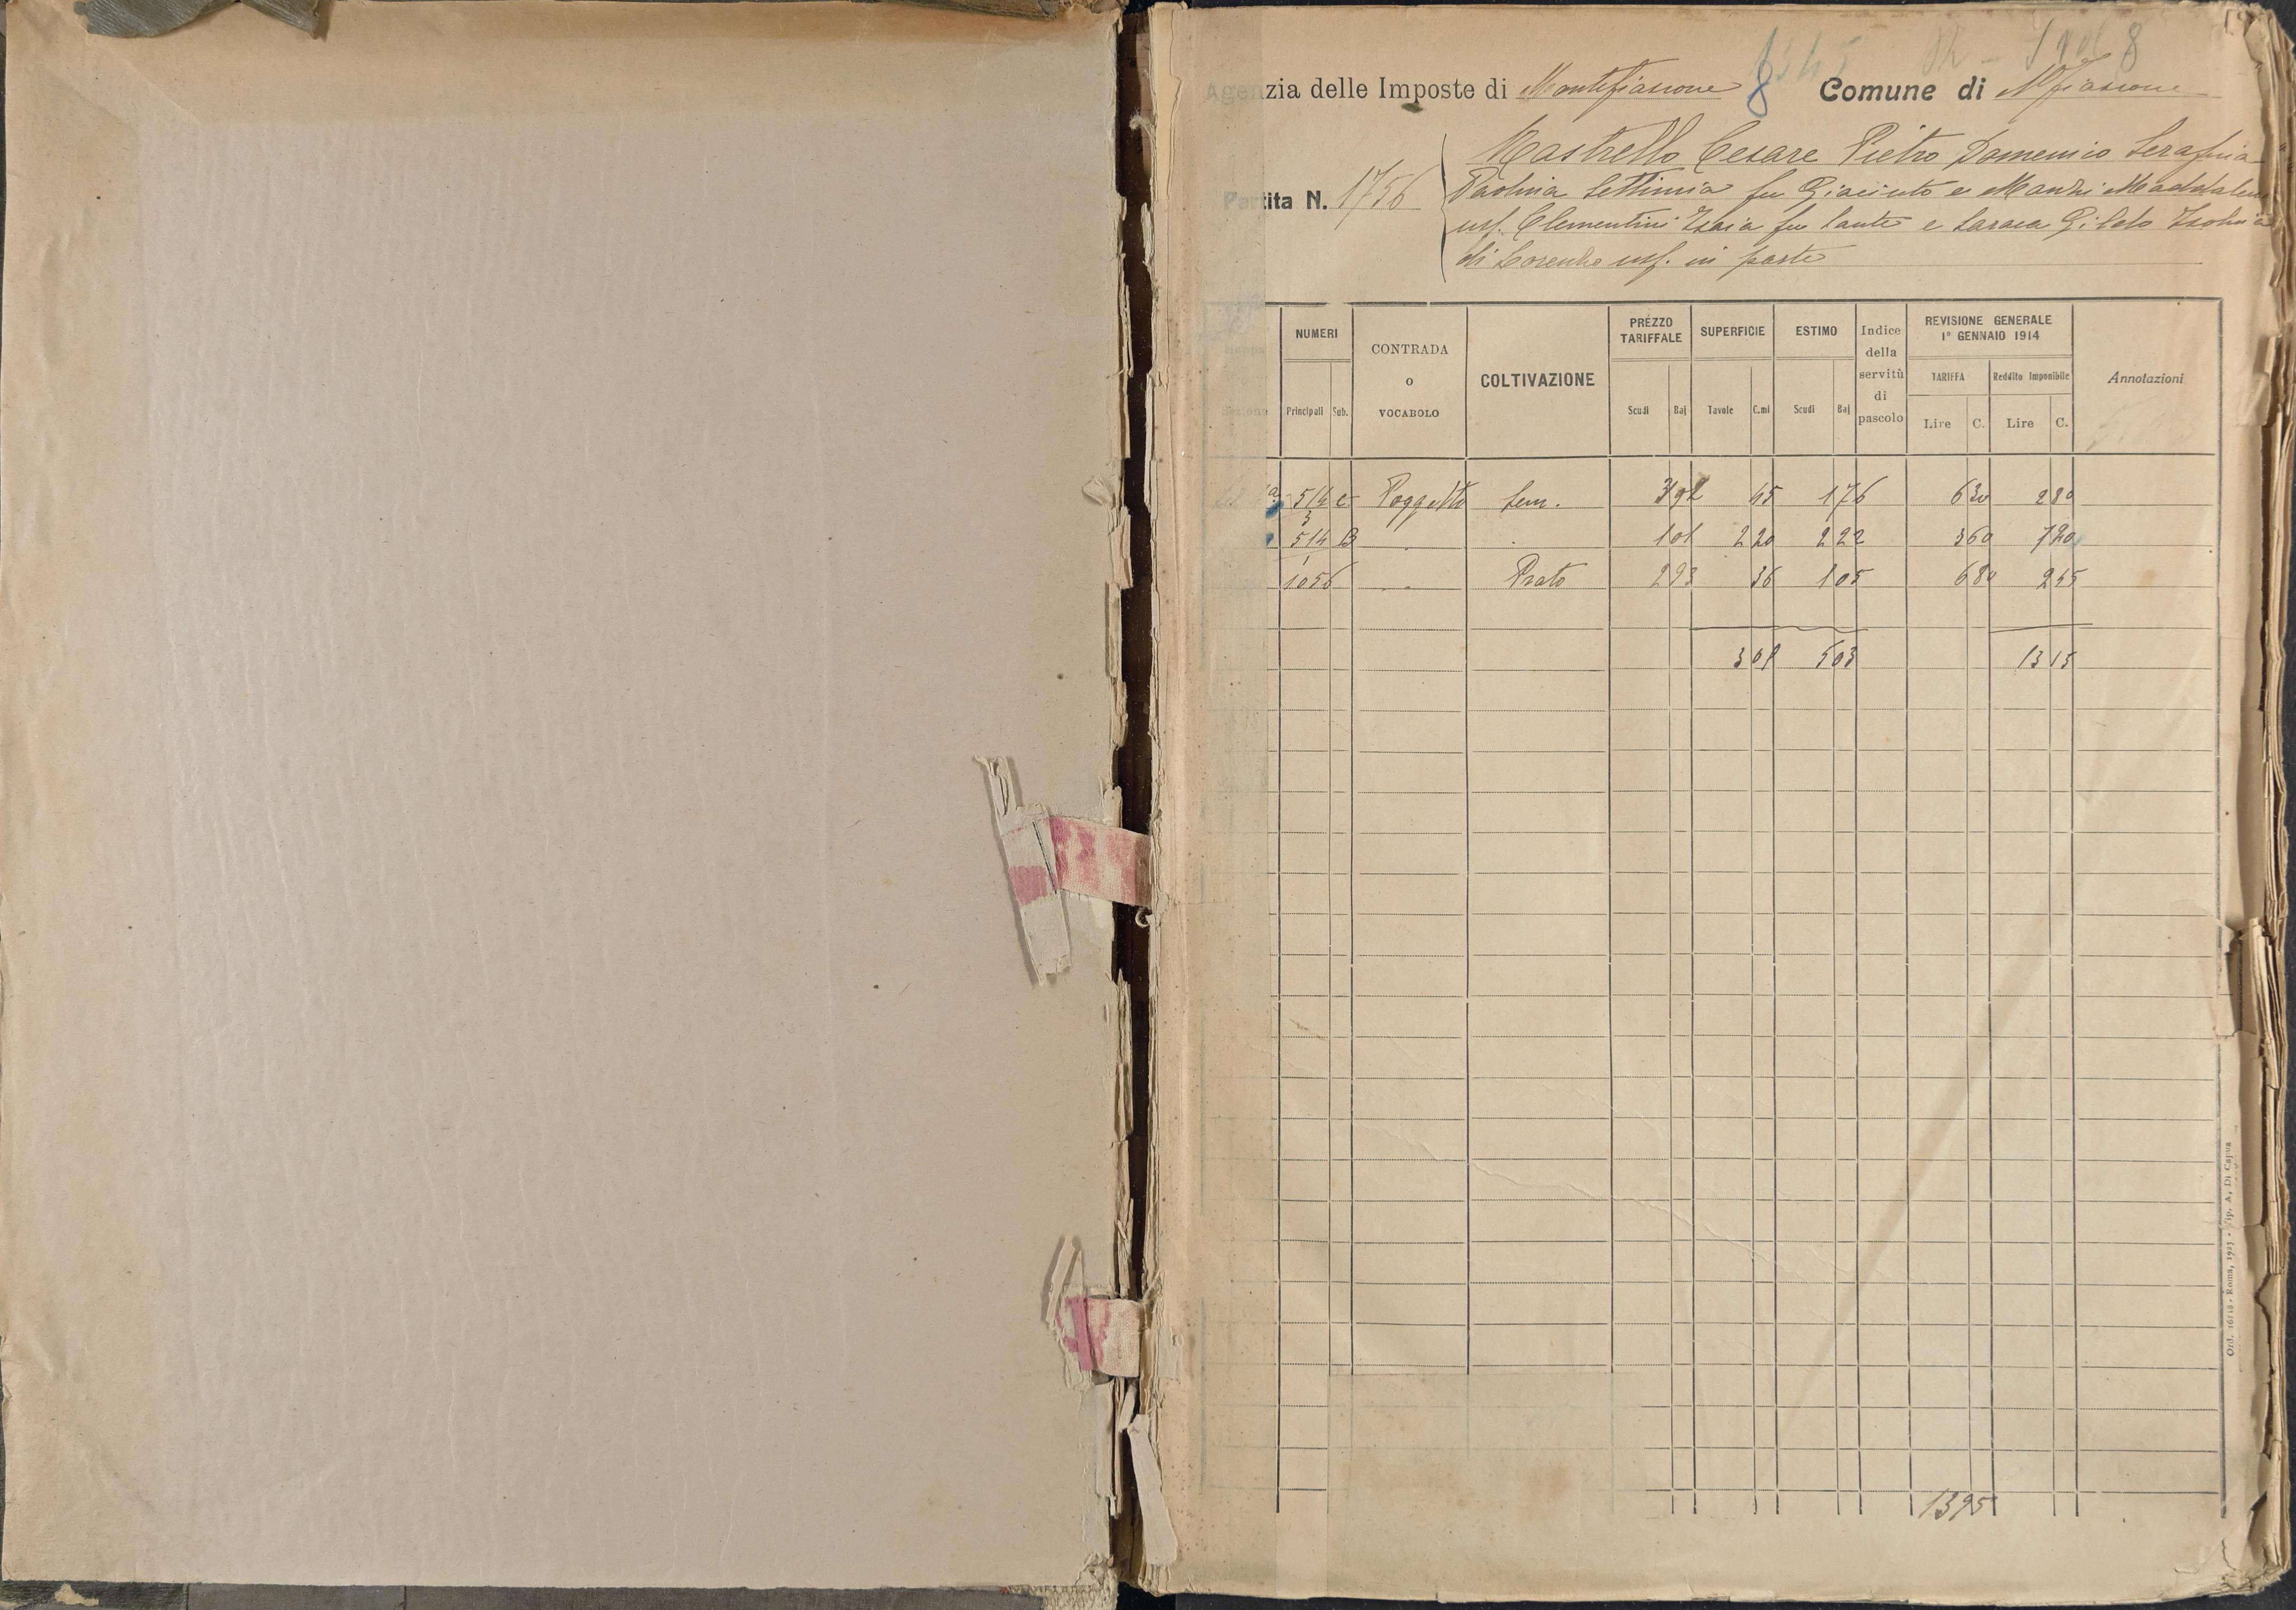 8
Agenzia delle Imposte di Montefiascone 8 Comune di Mfiascone
Partita N. 1756
Mastrello Cesare Pietro Domenico Serafina
Paolina Settimia fu Giacinto e Manzi Maddalena
usf. Clementini Isaia fu Sante e Saraca Gildo
di Lorenzo usf. in parte
NUMERI
CONTRADA
o
VOCABOLO
COLTIVAZIONE
PREZZO
TARIFFALE
SUPERFICIE
ESTIMO
Indice
della
servitù
di
pascolo
REVISIONE GENERALE
1° GENNAIO 1914
TARIFFA Reddito Imponibile
Annotazioni
Principali Sub. Scudi Baj Tavole C.mi Scudi Baj Lire C. Lire C.
514 C Poggetto Sem. 3 92 45 1 76 6 20 2 80
3
514 B 1 01 2 20 2 22 3 60 7 20
1
1056 Prato 2 93 36 1 05 6 80 2 45
3 01 5 03
13 15
1395
Ord. 1618 - Roma, 1913 - Tip. A. Di Capua